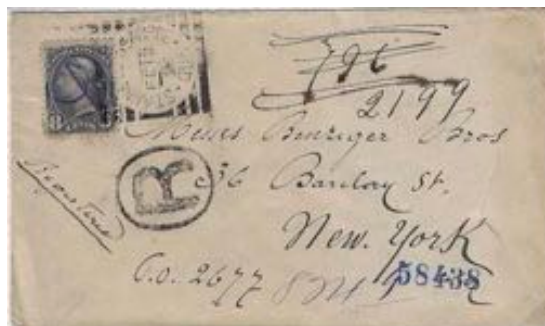 2199
Messrs Benziger Bros
36 Barclay St.
New. York
Registered
R
C.O. 2677
58438